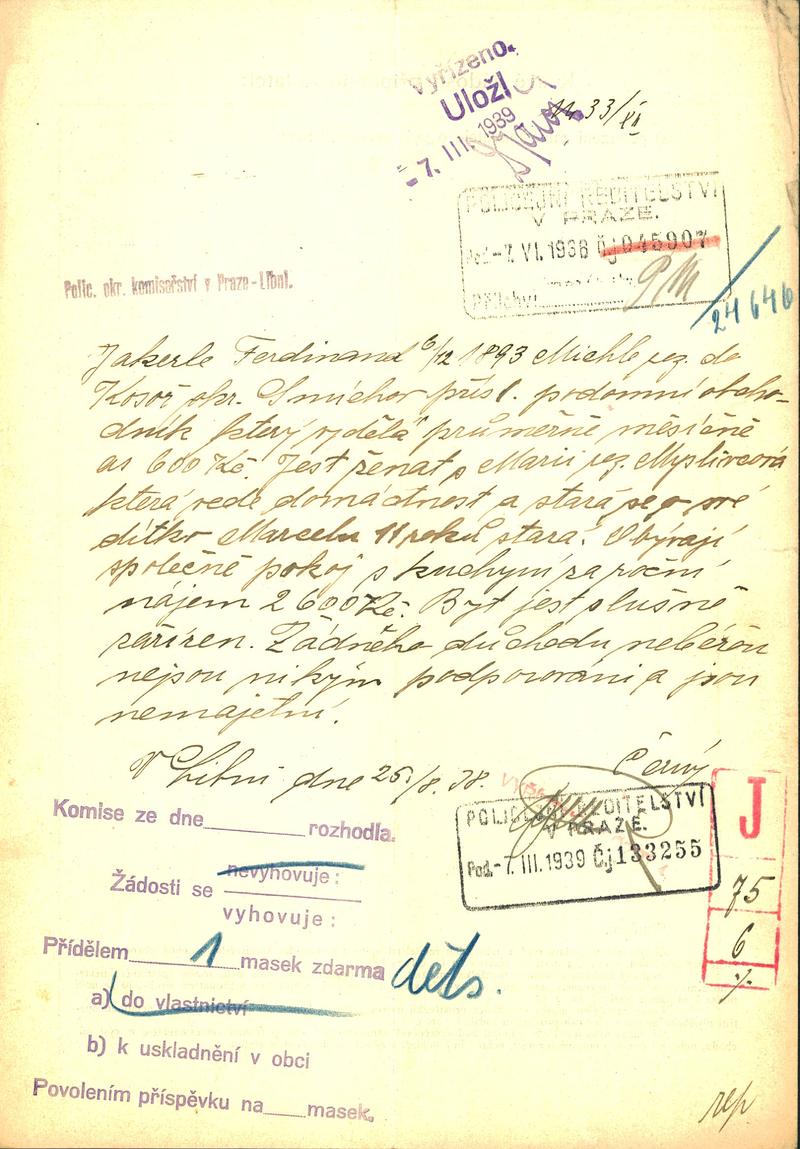 Vyřízeno.
Uloží
- 7. III. 1939
33/XI
POLICEJNÍ ŘEDITELSTVÍ
V PRAZE.
Pod. -7. VI. 1938 Čj 045907
Příloh
24646
Polic. okr. komisařství v Praze-Libni.
Jakerle Ferdinand 6/12 1893 Michle
Kosoř okr. Smíchov přísl. podomní obcho-
dník který vydělá průměrně měsíčně
as 600 Kč. Jest ženat s Marií roz. Myslivcová
která vede domácnost a stará se o své
dítko Marcelu 11 roků stará. Obývají
společně pokoj s kuchyní za roční
nájem 2600 Kč. Byt jest slušně
zařízen. Žádného důchodu neberou
nejsou nikým podporováni a jsou
nemajetní.
V Libni dne 25./8. 38. Černý
Komise ze dne rozhodla.
POLICEJNÍ ŘEDITELSTVÍ
V PRAZE.
Pod. -7. III. 1939 Čj 133255
J
75
6
nevyhovuje:
Žádosti se
vyhovuje:
Přídělem 1 masek zdarma děts.
a) do vlastnictví
b) k uskladnění v obci
Povolením příspěvku na masek.